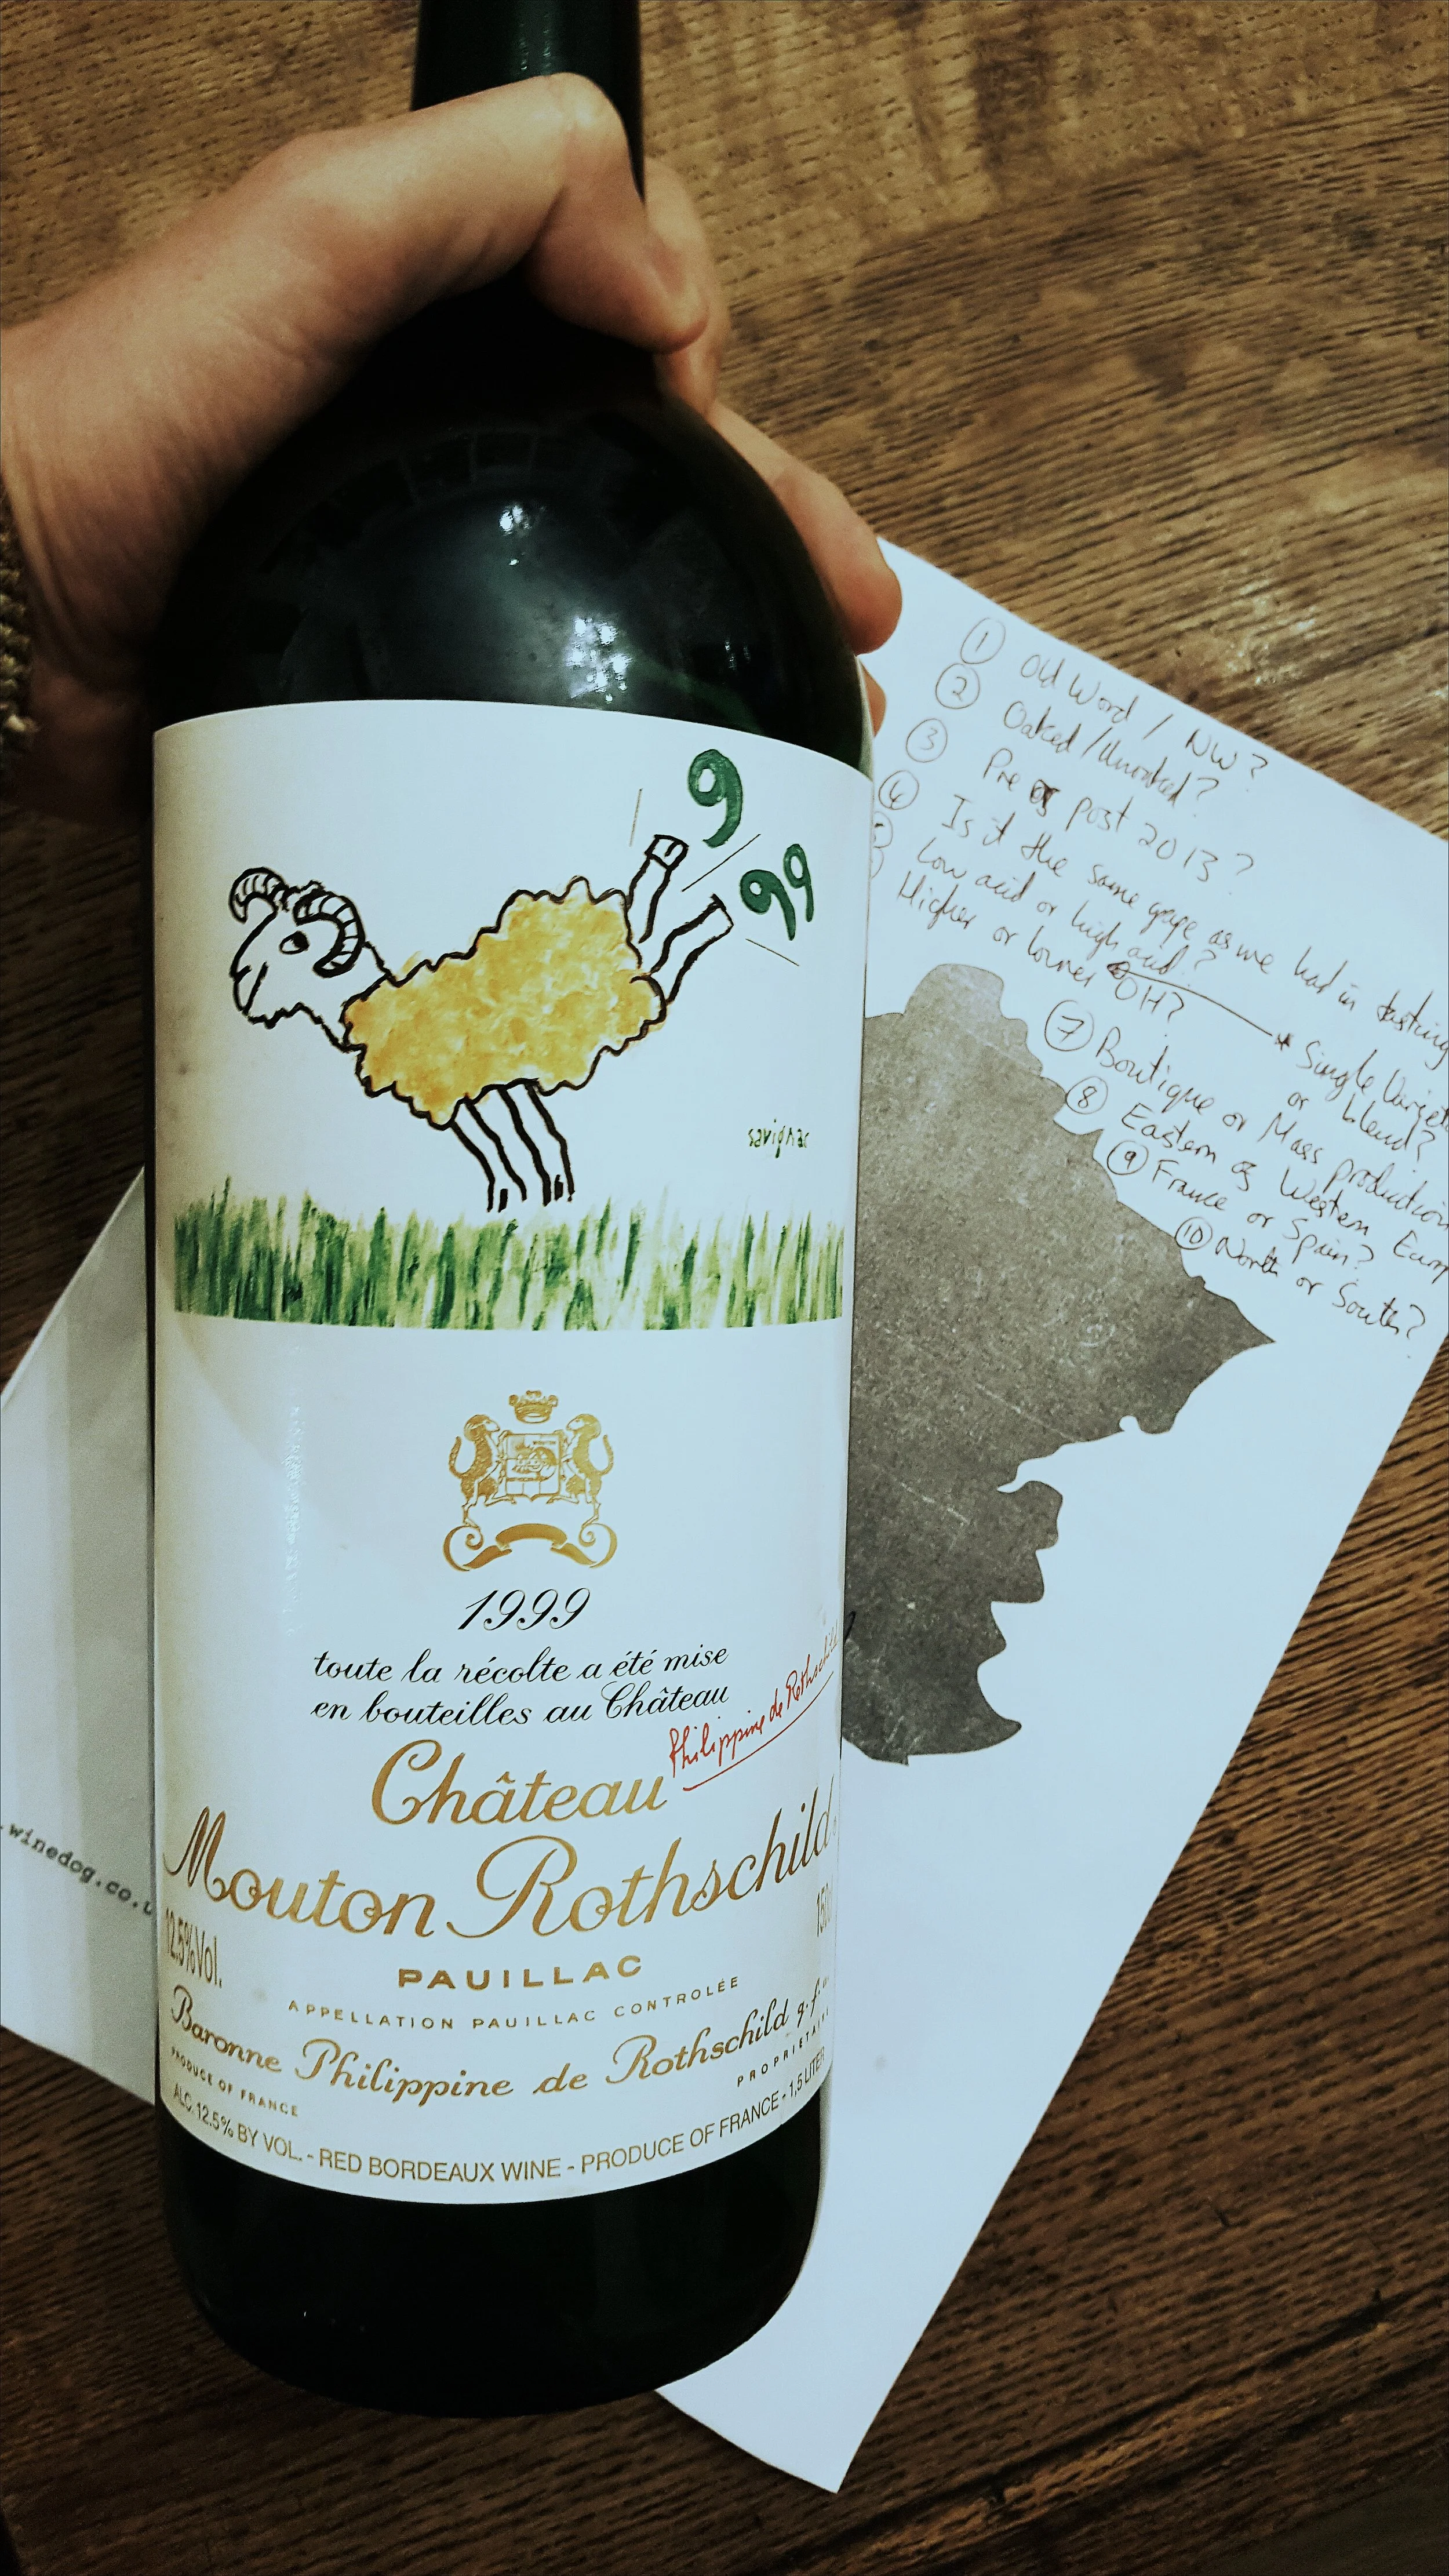 9
99
savignac
1999
toute la récolte a été mise
en bouteilles au Château
Philippine de Rothschild
Château
Mouton Rothschild
12.5%Vol.
PAUILLAC
APPELLATION PAUILLAC CONTROLÉE
Baronne Philippine de Rothschild g.f.
PRODUCE OF FRANCE
ALC. 12.5% BY VOL. - RED BORDEAUX WINE - PRODUCE OF FRANCE - 1,5 LITER
winedog.co.u
1 Old Word / NW?
2 Oaked/Unoaked?
3 Pre or post 2013?
4 Is it the same grape as we had in tasting
Low acid or high acid?
Higher or lower OH?
* Single
or blend?
7 Boutique or Mass production
8 Eastern or Western Europ
9 France or Spain?
10 North or South?